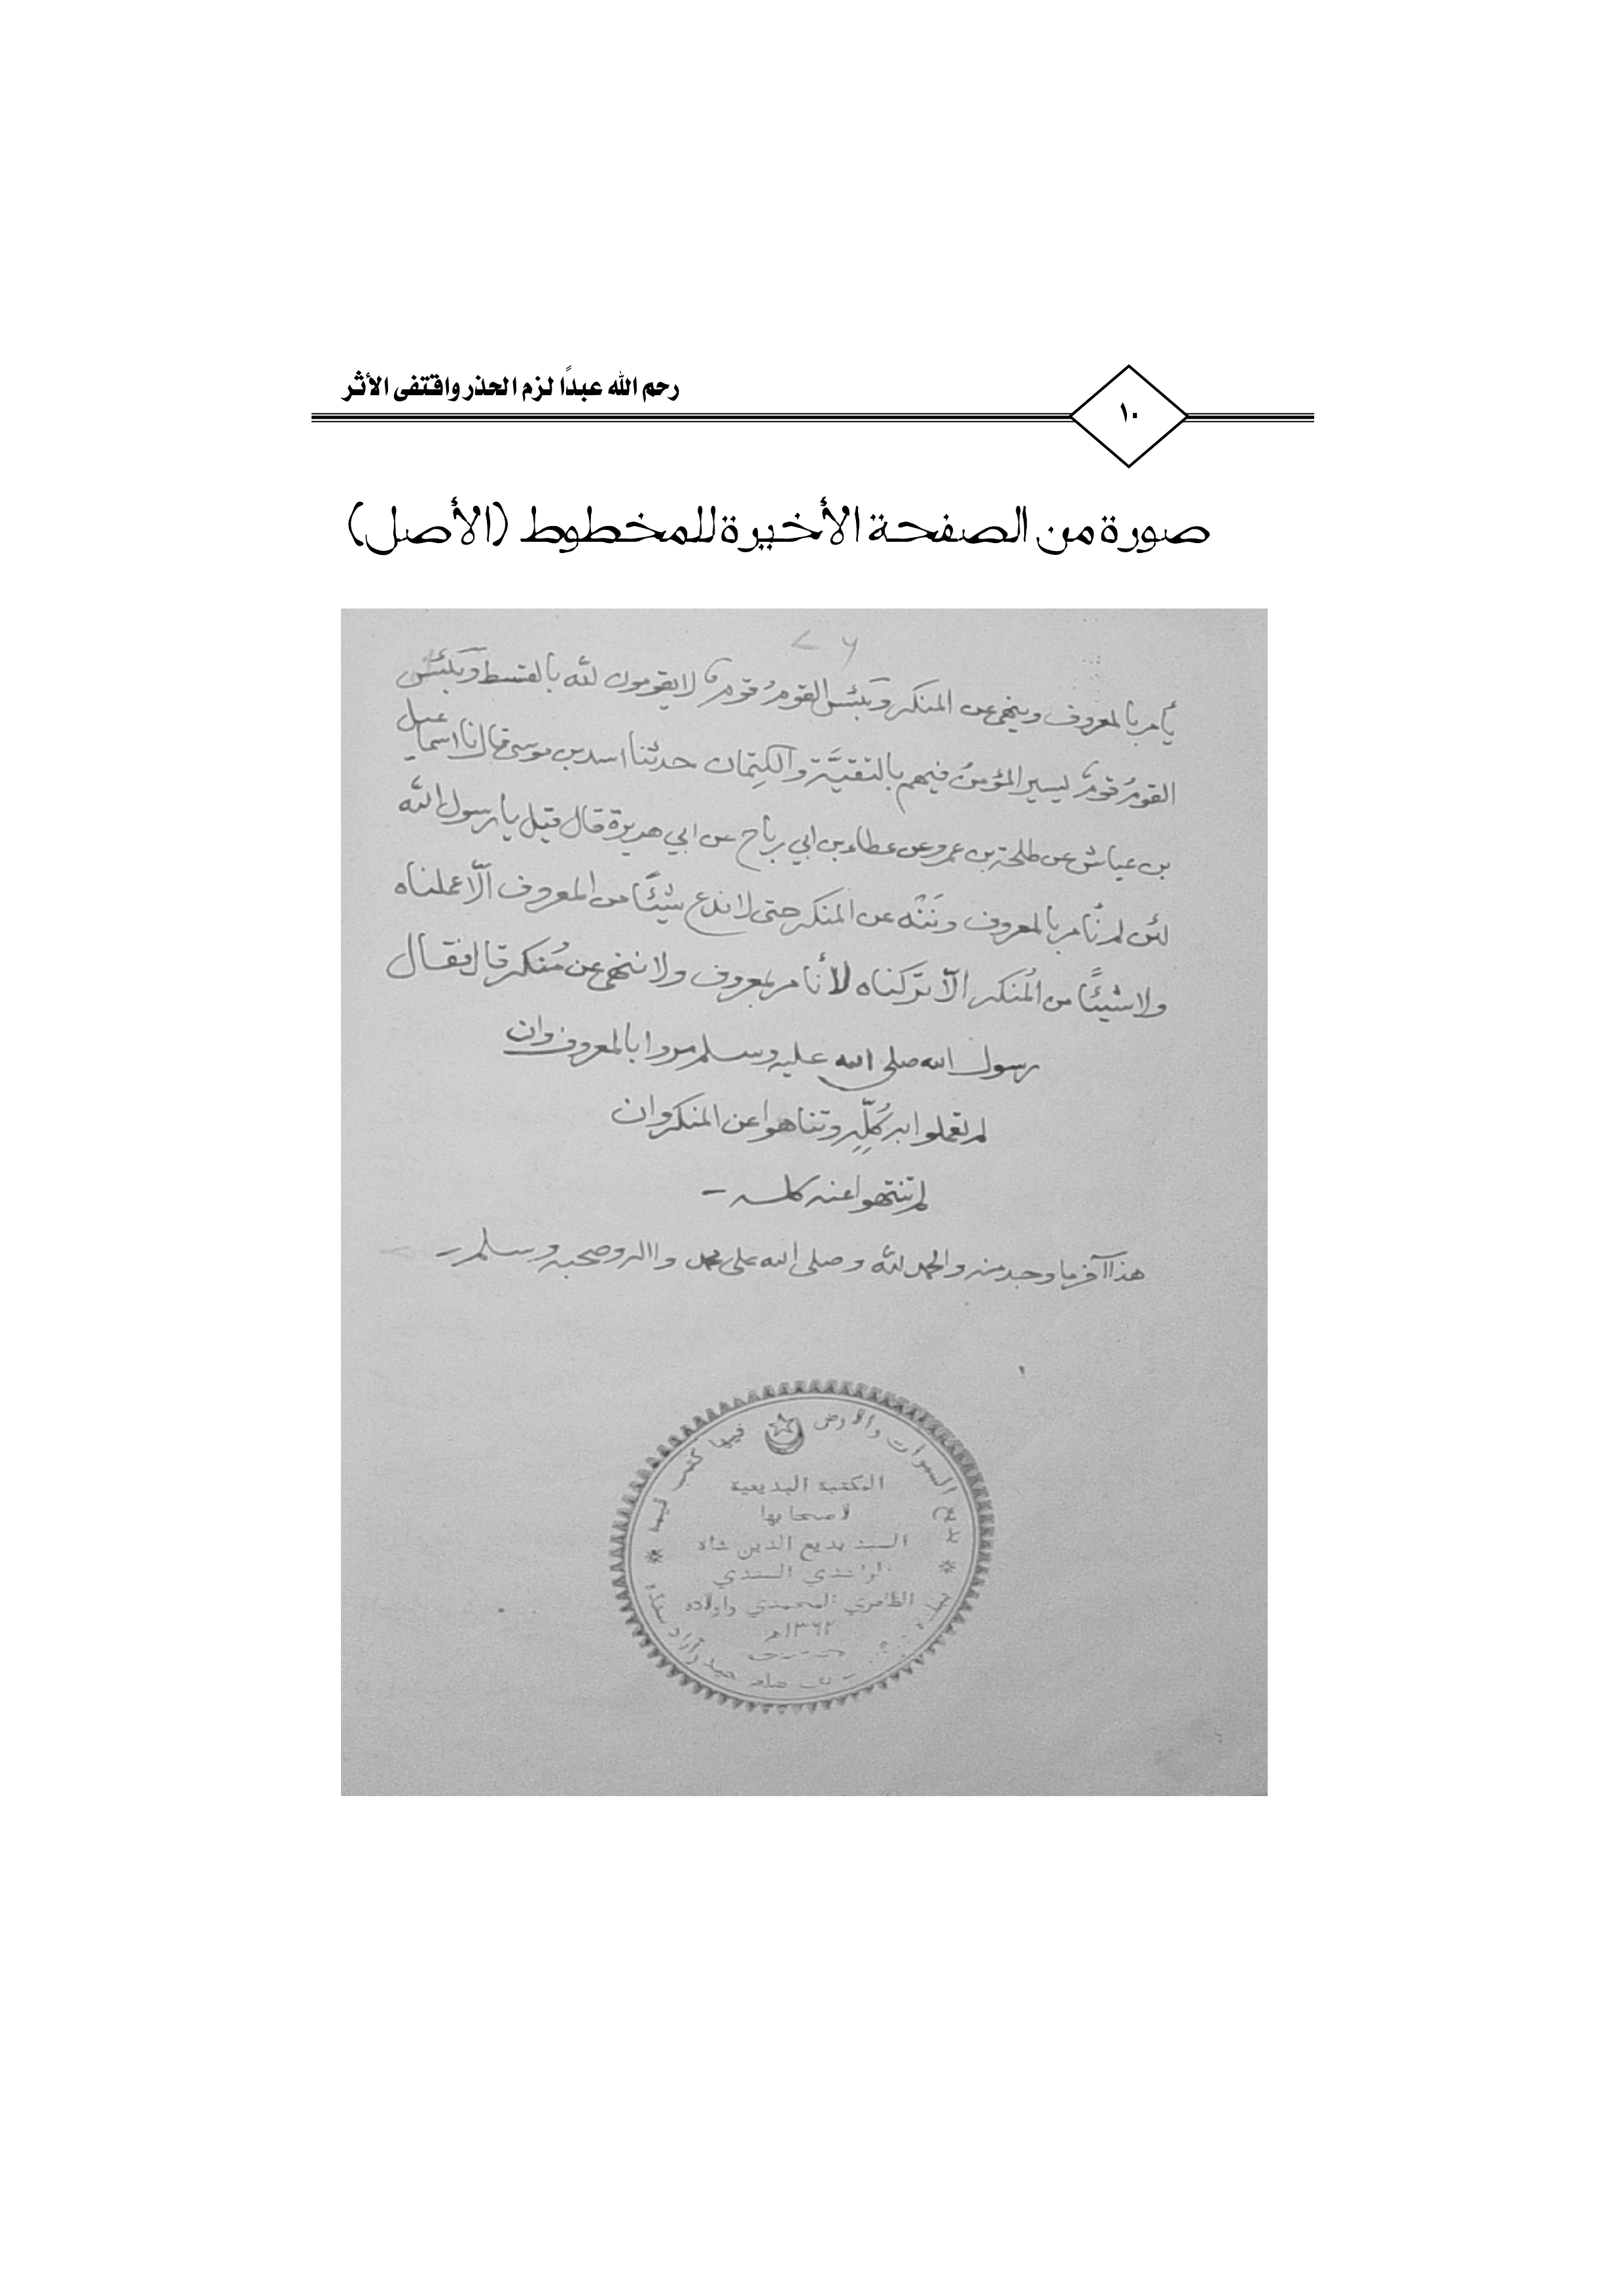 رحم الله عبدًا لزم الحذر واقتفى الأثر
١٠
صورة من الصفحة الأخيرة للمخطوط (الأصل)
يأمر بالمعروف وينهى عن المنكر وبَئِسَ القومُ قومٌ لا يقومون لله بالقسط وبَئِسَ
القومُ قومٌ يسير المؤمنُ فيهم بالتقيَّة والكِتمان حدثنا اسد بن موسى قال نا اسماعيل
بن عياش عن طلحة بن عمرو عن عطاء بن ابي رباح عن ابي هريرة قال قيل يا رسول الله
لئن لم نأمر بالمعروف ونَنْهَ عن المنكر حتى لا ندع شيئًا من المعروف الّا عملناه
ولا شيئًا من المُنكر الّا تركناه لا نأمر بمعروف ولا ننهى عن مُنكر قال فقال
رسول الله صلى الله عليه وسلم مروا بالمعروف وان
لم تعملوا به كُلِّهِ وتناهوا عن المنكر وان
لم تنتهوا عنه كله –
هذا آخر ما وجد منه والحمد لله وصلى الله على محمد وآله وصحبه وسلم –
بديع السموات والارض فيها كتب
المكتبة البديعية
لاصحابها
السيد بديع الدين شاه
الراشدي السندي
الظاهري المحمدي واولاده
١٣٦٢هـ
حيدرآباد سنده